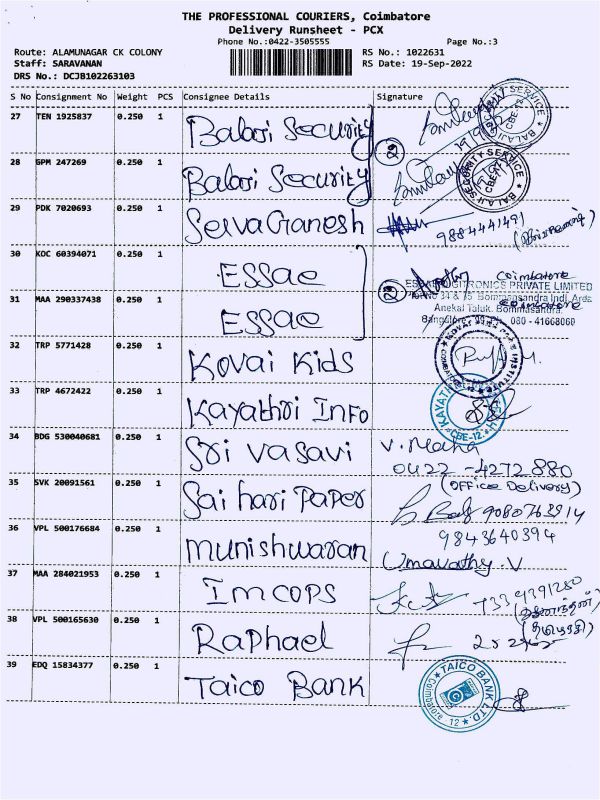 THE PROFESSIONAL COURIERS, Coimbatore
Delivery Runsheet - PCX
Phone No.:0422-3505555 Page No.:3
Route: ALAMUNAGAR CK COLONY RS No.: 1022631
Staff: SARAVANAN RS Date: 19-Sep-2022
DRS No.: DCJB102263103
S No Consignment No Weight PCS Consignee Details Signature
27 TEN 1925837 0.250 1 Balaji Security
BALAJI SECURITY SERVICE CBE-12
28 GPM 247269 0.250 1 Balaji Security
BALAJI SECURITY SERVICE CBE-12
29 PDK 7020693 0.250 1 Selva Ganesh 9884441491
30 KOC 60394071 0.250 1 ESSAE Coimbatore
ESSAE DIGITRONICS PRIVATE LIMITED
31 MAA 290337438 0.250 1 ESSAE Coimbatore
Bommasandra Indl. Area
Anekal Taluk. Bommasandra.
080 - 41668060
32 TRP 5771428 0.250 1 Kovai Kids
33 TRP 4672422 0.250 1 Kayathri Info
CBE-12
34 BDG 530040681 0.250 1 Sri Vasavi V. Maha
0422 - 4272880
35 SVK 20091561 0.250 1 Sai hari Paper (OFFICE Delivery)
9080763914
36 VPL 500176684 0.250 1 Munishwaran 9843640394
Umavathy.V
37 MAA 284021953 0.250 1 Imcops 7339391280
38 VPL 500165630 0.250 1 Raphael
39 EDQ 15834377 0.250 1 Taico Bank
TAICO BANK LTD. Coimbatore 12